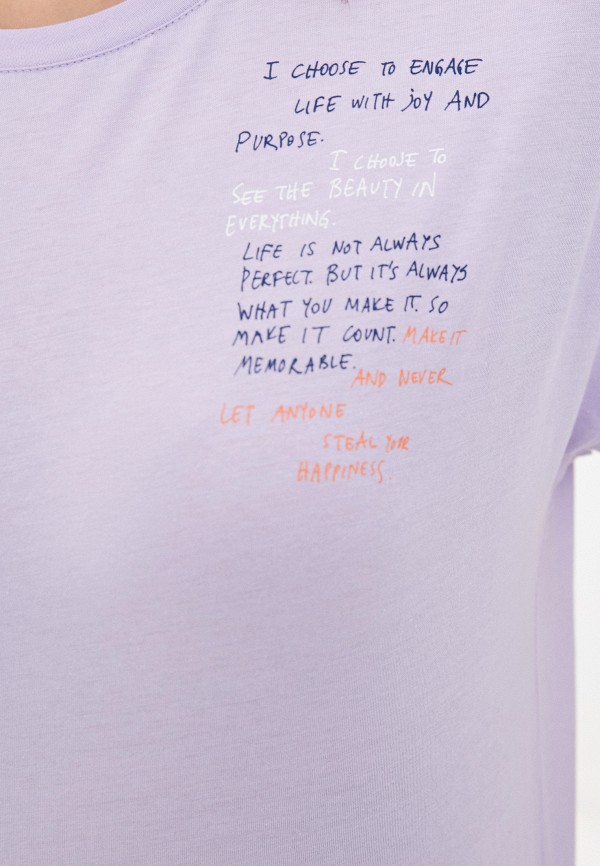 I CHOOSE TO ENGAGE
LIFE WITH JOY AND
PURPOSE.
I CHOOSE TO
SEE THE BEAUTY IN
EVERYTHING.
LIFE IS NOT ALWAYS
PERFECT. BUT IT'S ALWAYS
WHAT YOU MAKE IT. SO
MAKE IT COUNT. MAKE IT
MEMORABLE.
AND NEVER
LET ANYONE
STEAL YOUR
HAPPINESS.